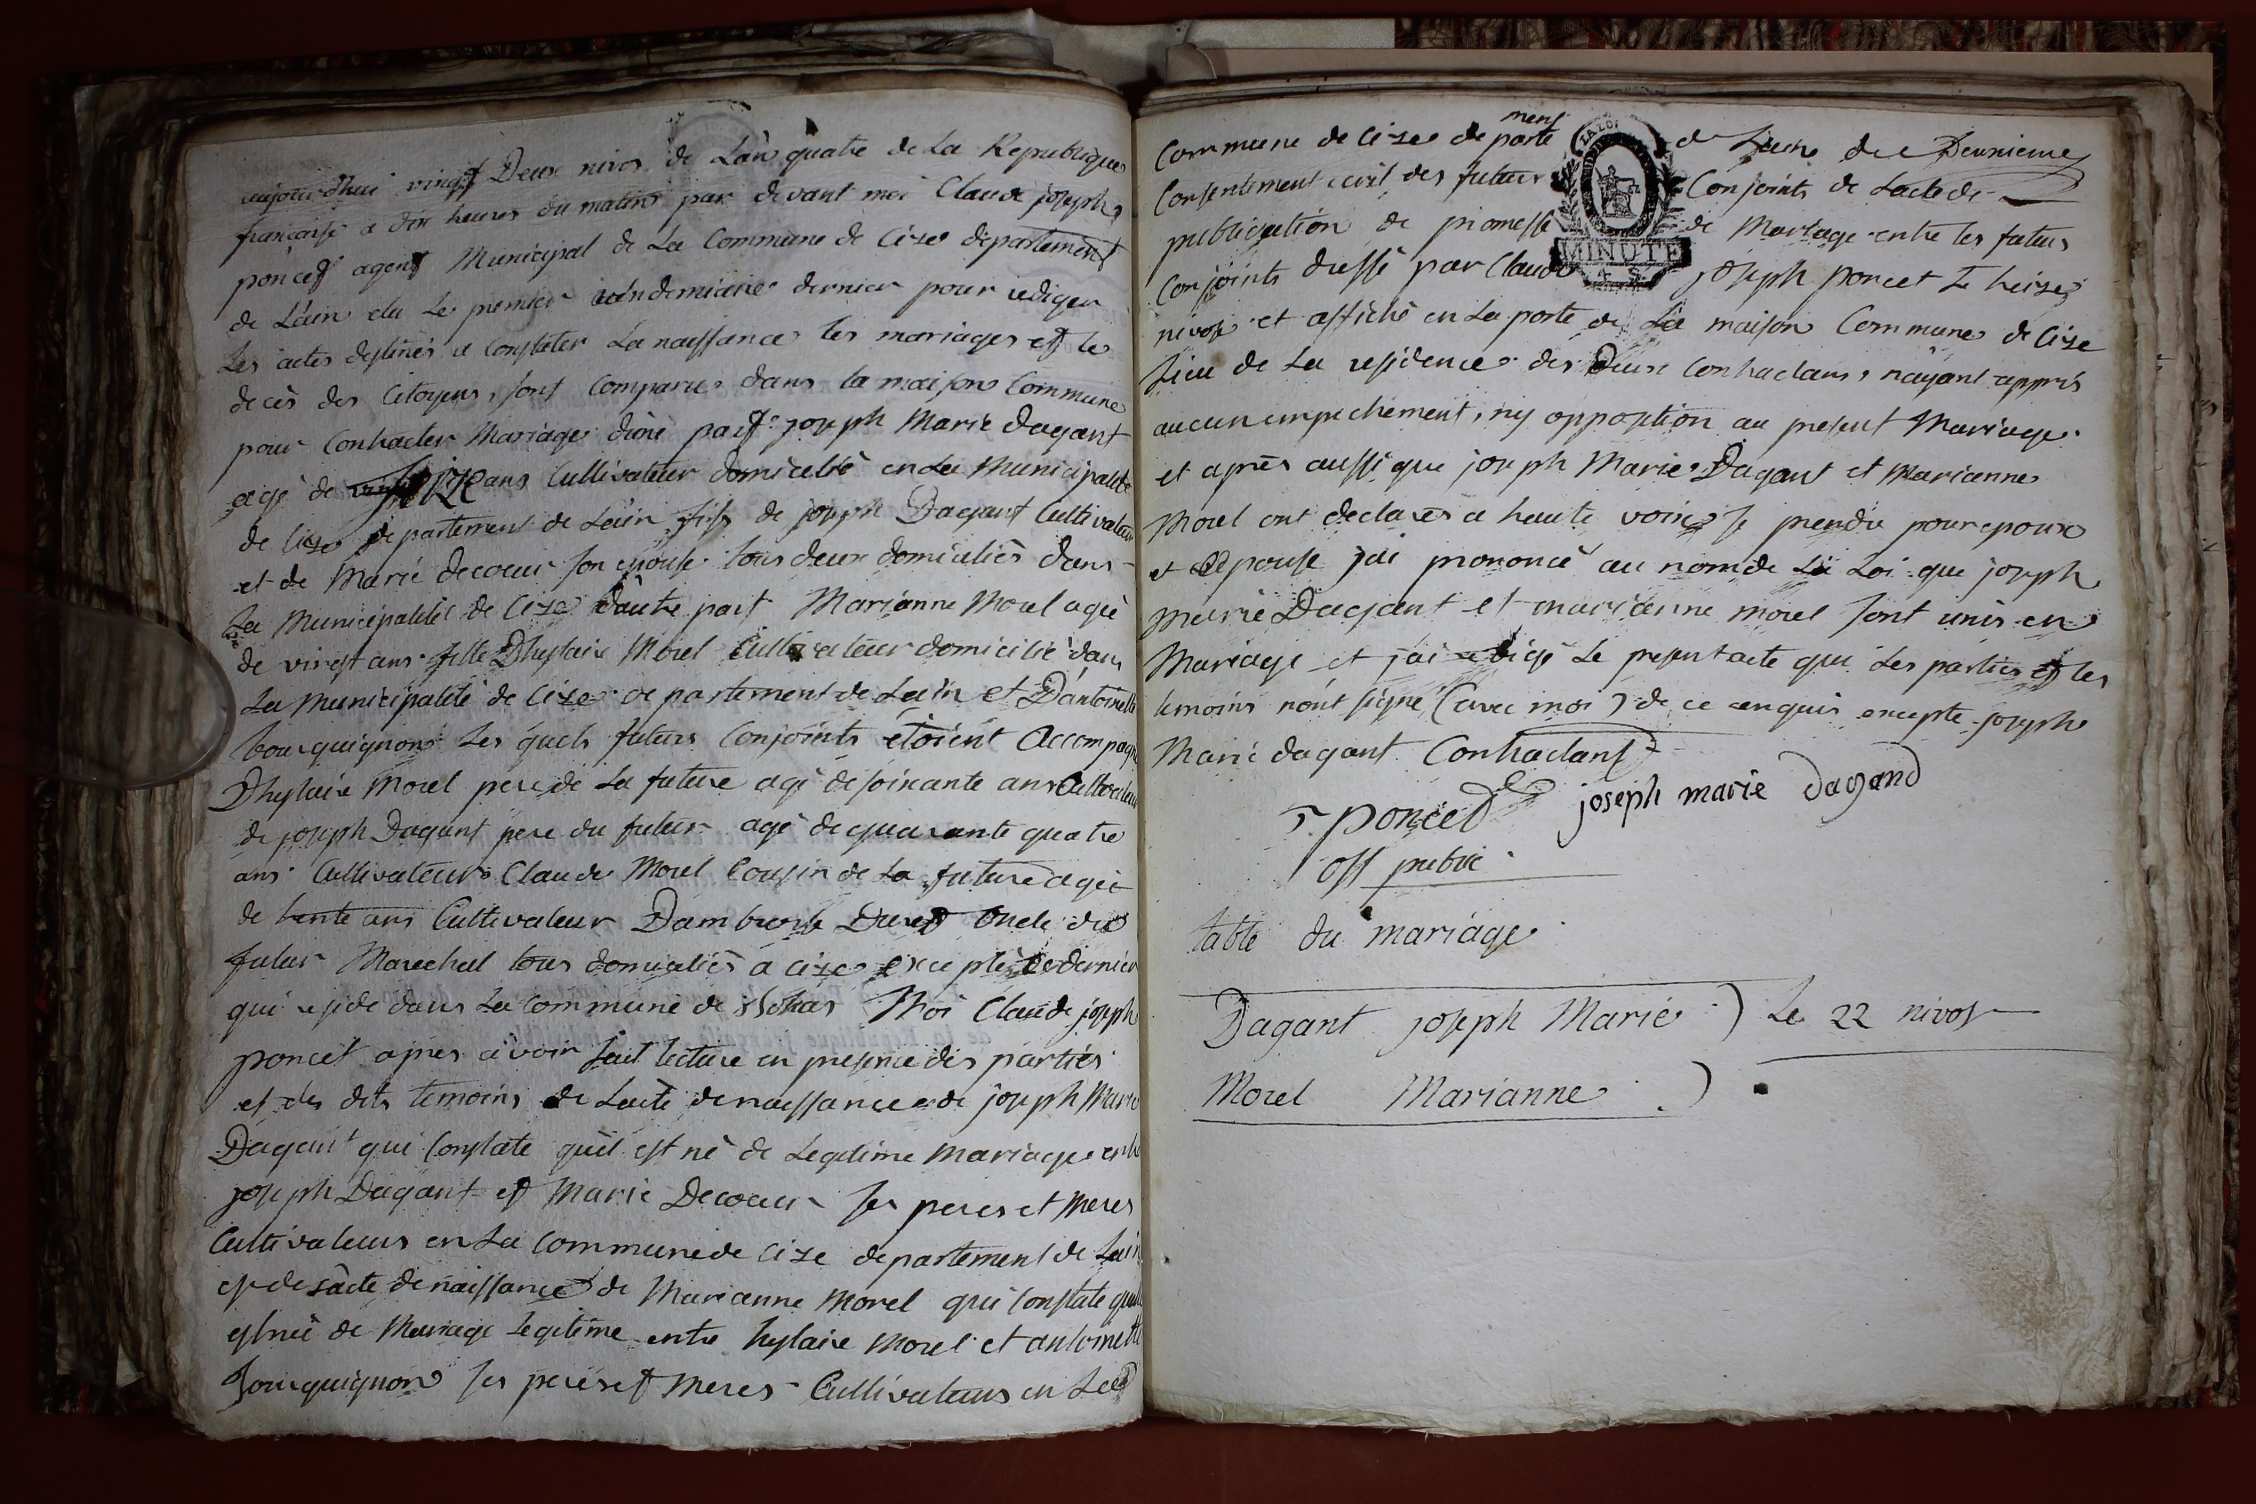 aujourd'hui vingt Deux nivos de Lan quatre de La Republique
francaise a dix heures du matin par devant moi Claude joseph
poncet agent Municipal de La Commune de Cize departement
de Lain elu Le premier vendemiaire dernier pour rediger
Les actes destinés a Constater La naissance les mariages et le
decès des Citoyens, sont Comparus dans la maison Commune
pour Contracter Mariage dune part joseph Marie Dagant
agé de seize ans Cultivateur domicilié en La Municipalité
de Cize departement de Lain fils de joseph Dagant Cultivateur
et de Marie decoeur son epouse tous deux domiciliés dans
La Municipalité de Cize dautre part Marianne Morel agée
de vingt ans fille Dhylaire Morel Cultivateur domicilié dans
La Municipalité de Cize departement de Lain et Dantoinette
bourguignon Les quels futurs Conjoints étoient Accompagné
Dhylaire Morel pere de La future agé de soixante ans Cultivateur
de joseph Dagant pere du futur agé de quarante quatre
ans Cultivateur Claude Morel Cousin de La future agée
de trente ans Cultivateur Dambroise oncle du
futur Marechal tous domiciliés a cize excepté le dernier
qui reside dans La Commune de Moi Claude joseph
poncet apres avoir fait lecture en presence des parties
et des dits temoins de Lacte de naissance de joseph Marie
Dagant qui Constate quil est né de Legitime mariage entre
joseph Dagant et Marie Decoeur ses peres et meres
Cultivateurs en La Commune de cize departement de Lain
et de Lacte de naissance de Marianne Morel qui Constate quelle
est née de Mariage Legitime entre hylaire Morel et antoinette
bourguignon ses peres et Meres Cultivateurs en La
Commune de Cize departe ment de Lain de
Consentement civil des futurs Conjoints de Lacte de
publication de promesse de Mariage entre les futurs
Conjoints dressé par Claude joseph poncet Le treize
nivose et affiché en La porte de La maison Commune de Cize
Lieu de La residence des Deux Contractans, nayant appris
aucun empechement, ny opposition au present Mariage
et après aussi que joseph Marie Dagant et Marianne
Morel ont declarés a haute voix se prendre pour epoux
et Epouse jai prononcé au nom de La Loi que joseph
Marie Dagant et marianne morel sont unis en
Mariage et jai redigé Le present acte que Les parties et les
temoins nont signé (avec moi) de ce enquis excepte joseph
Marie dagant Contractant
poncet joseph marie Dagand
off public
table du mariage
Dagant joseph Marie ) Le 22 nivos
Morel Marianne )
LA LOI
MINUTE